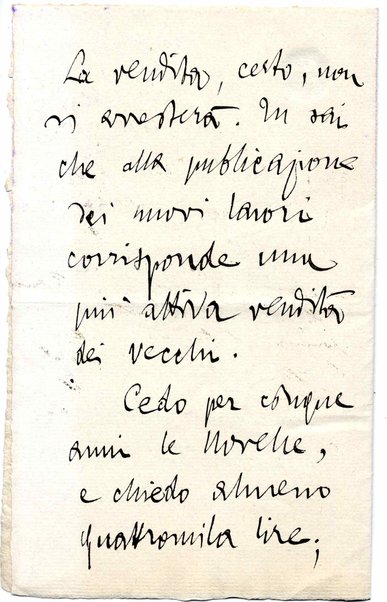 La vendita, certo, non
si arresterà. Tu sai
che alla publicazione
dei nuovi lavori
corrisponde una
più attiva vendita
dei vecchi.
Cedo per cinque
anni le Novelle,
e chiedo almeno
quattromila lire;